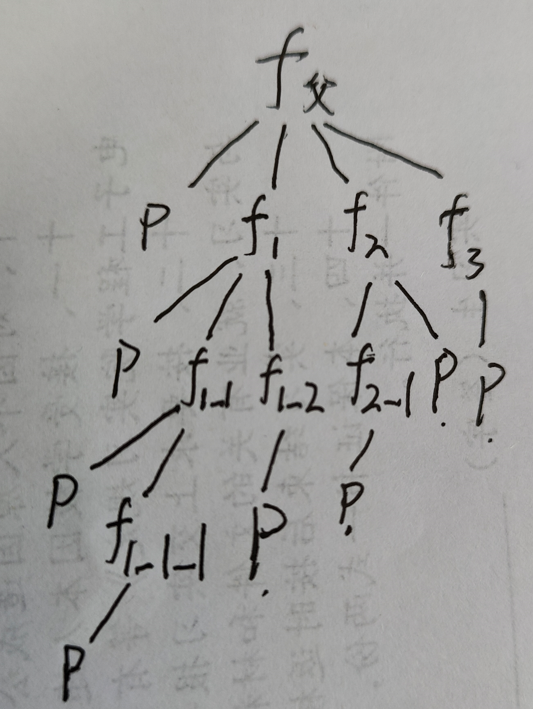 f父
P f1 f2 f3
P f1-1 f1-2 f2-1 P. P.
P f1-1-1 P. P.
P